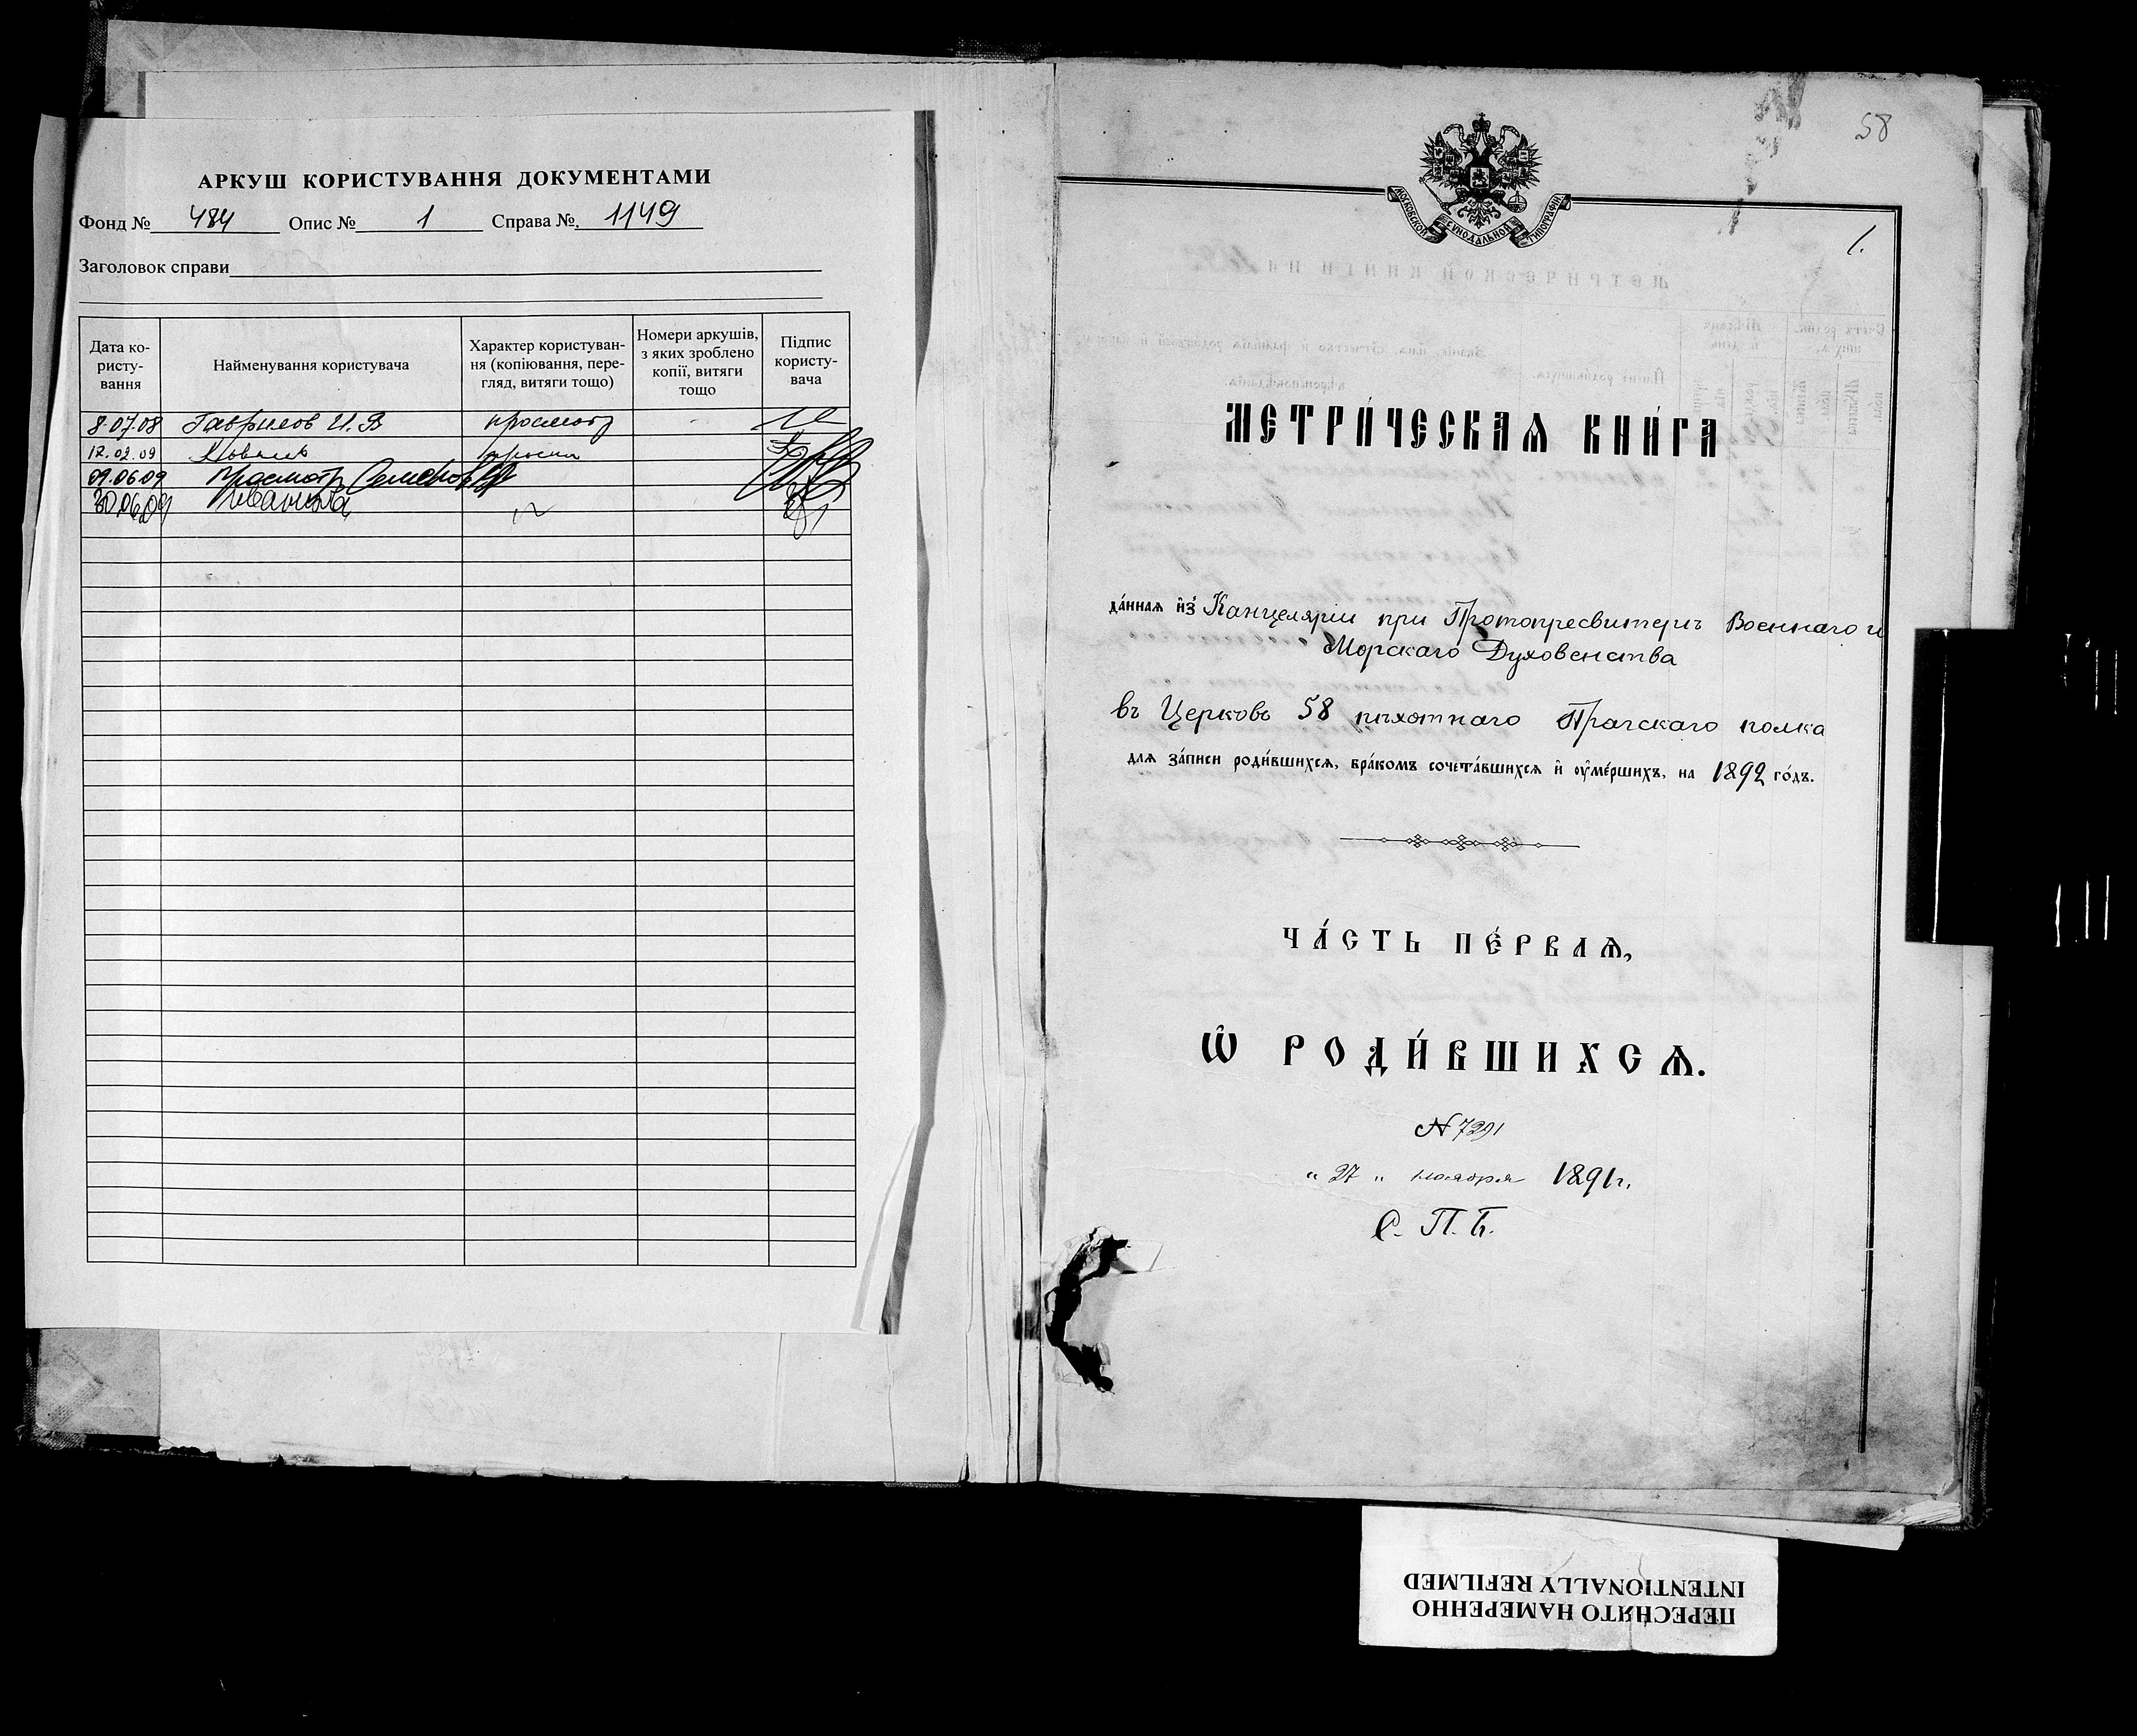 АРКУШ КОРИСТУВАННЯ ДОКУМЕНТАМИ
Фонд № 484 Опис № 1 Справа № 1149
Заголовок справи
Дата ко-
ристу-
вання
Найменування користувача
Характер користуван-
ня (копіювання, пере-
гляд, витяги тощо)
Номери аркушів,
з яких зроблено
копії, витяги
тощо
Підпис
користу-
вача
8.07.08 Гаврилов И.В просмотр -
12.02.09 Коваль
09.06.09 просмотр Семенов
30.06.09 Иванова
58
МОСКОВСКОЙ СѴНОДАЛЬНОЙ ТИПОГРАФІИ
1.
МЕТРИ́ЧЕСКАѦ КНИ́ГА
да́нная и҆з̾ Канцеляріи при Протопресвитерѣ Военнаго и
Морскаго Духовенства
въ Церковь 58 пѣхотнаго Прагскаго полка
для за́писи роди́вшихся, бра́комъ сочета́вшихся и҆ ᲂу҆ме́ршихъ, на 1892 го́дъ.
ЧА́СТЬ ПЕ́РВАѦ,
Ѽ РОДИ́ВШИХСѦ.
№ 7291
" 27 " ноября 1891 г.
С. П. Б.
ПЕРЕСНЯТО НАМЕРЕННО
INTENTIONALLY REFILMED